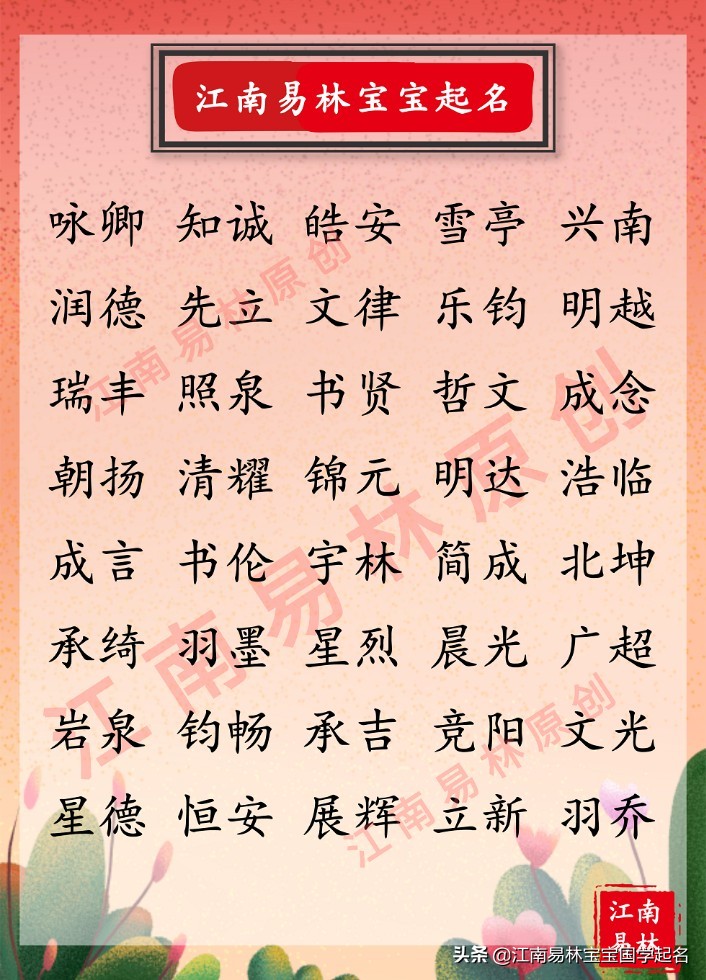 江南易林宝宝起名
咏卿 知诚 皓安 雪亭 兴南
润德 先立 文律 乐钧 明越
瑞丰 照泉 书贤 哲文 成念
朝扬 清耀 锦元 明达 浩临
成言 书伦 宇林 简成 北坤
承绮 羽墨 星烈 晨光 广超
岩泉 钧畅 承吉 竞阳 文光
星德 恒安 展辉 立新 羽乔
江南易林原创
江南易林原创
江南易林原创
江南
易林
头条 @江南易林宝宝国学起名